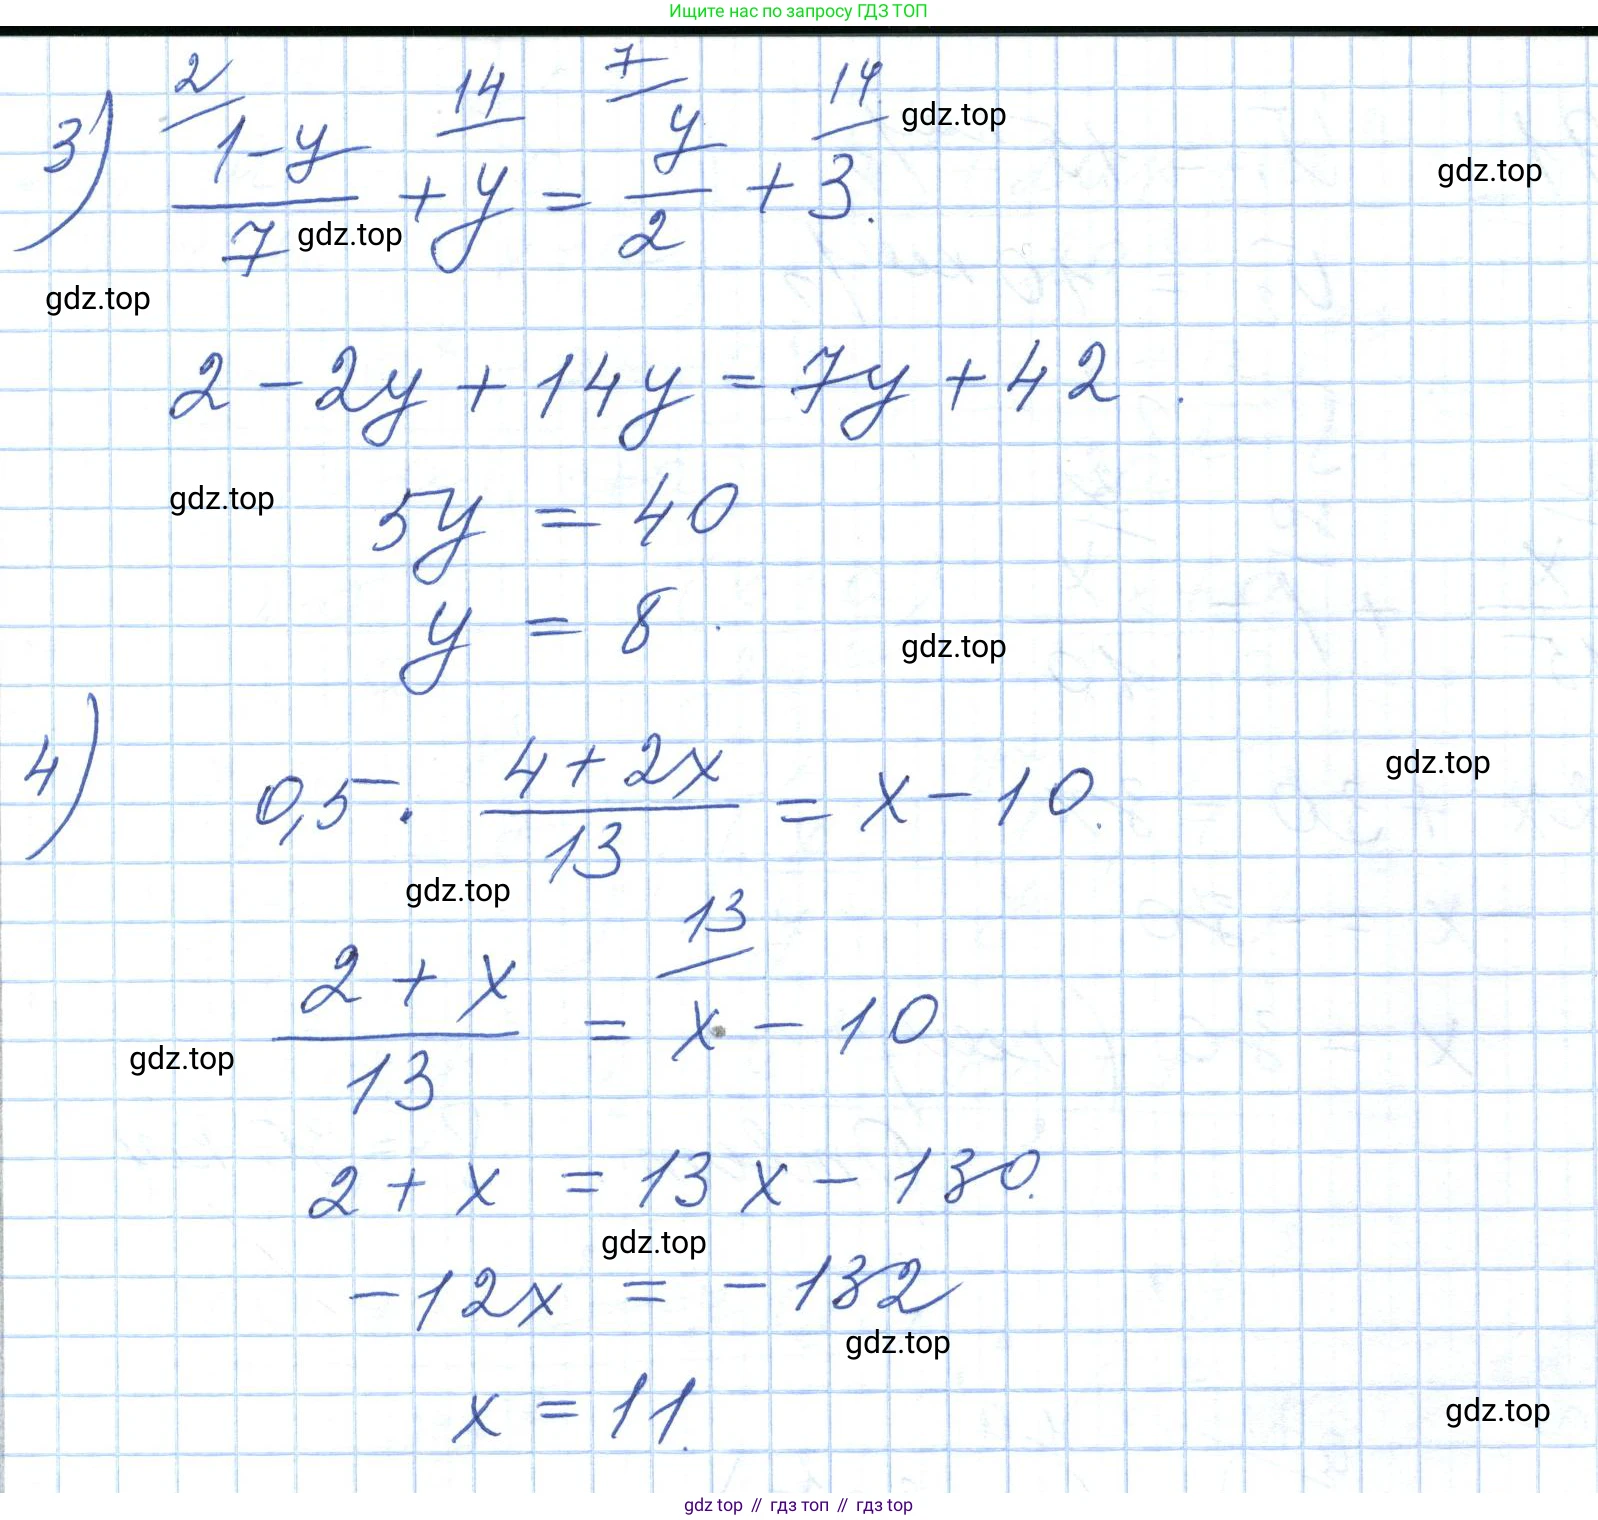 Ищите нас по запросу ГДЗ ТОП
2 14 7 14 gdz.top
3) (1-y)/7 + y = y/2 + 3. gdz.top
gdz.top
gdz.top
2 - 2y + 14y = 7y + 42.
gdz.top 5y = 40
y = 8. gdz.top
4) 0,5 · (4 + 2x)/13 = x - 10. gdz.top
gdz.top
13
(2 + x)/13 = x - 10
gdz.top
2 + x = 13x - 130.
gdz.top
-12x = -132
gdz.top
x = 11. gdz.top
gdz top // гдз топ // гдз top